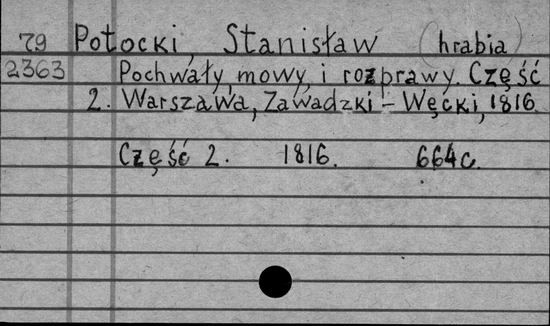 79 Potocki, Stanisław (hrabia)
2363 Pochwały, mowy, i rozprawy. Część
2. Warszawa, Zawadzki - Węcki, 1816.
Część 2. 1816. 664c.